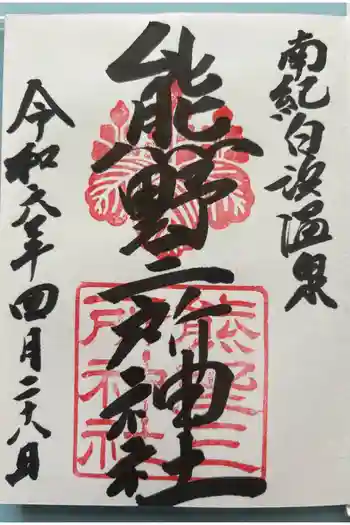 南紀白浜温泉
熊野三所神社
令和六年四月二十八日
熊野三
所神社